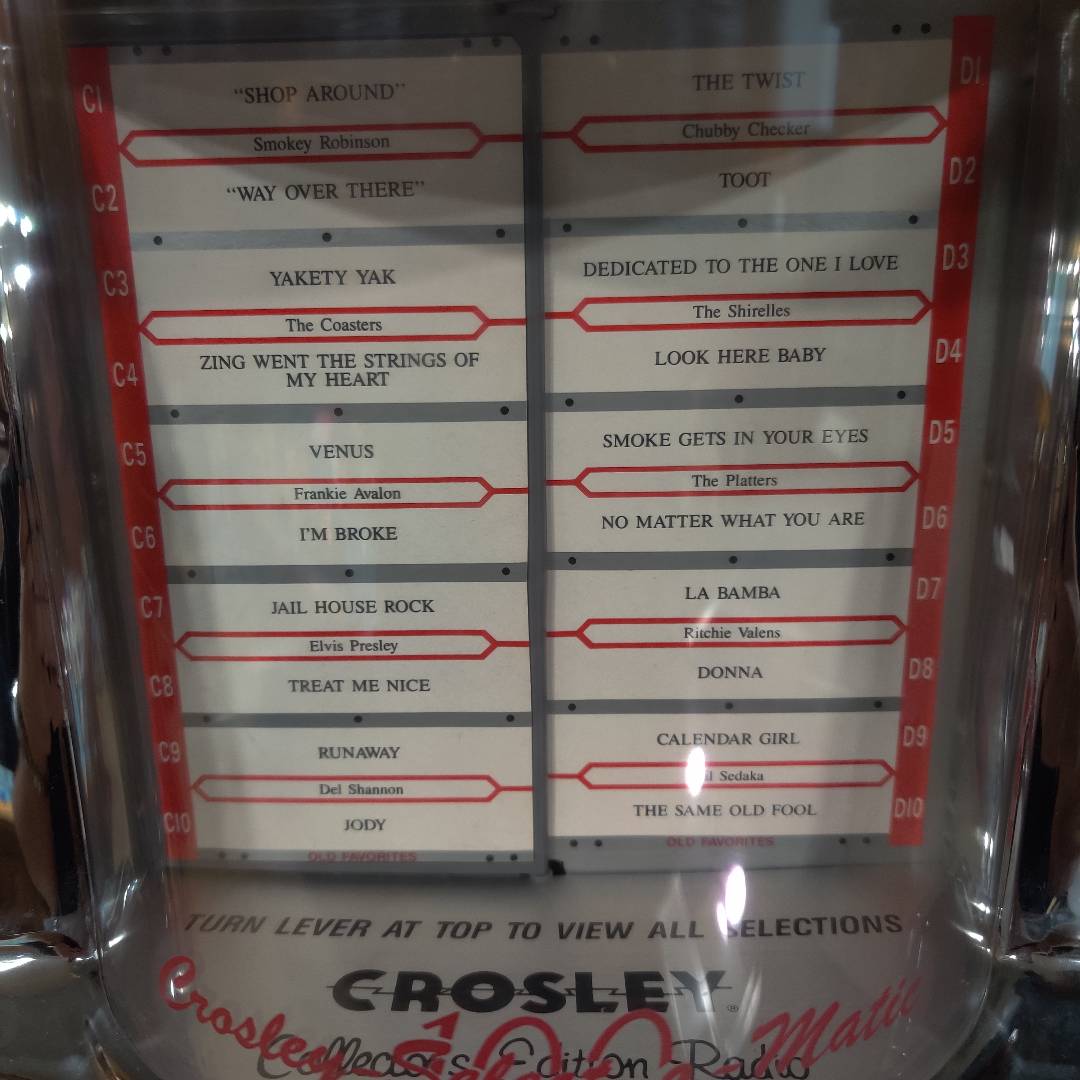 C1
"SHOP AROUND"
Smokey Robinson
C2
"WAY OVER THERE"
C3
YAKETY YAK
The Coasters
C4
ZING WENT THE STRINGS OF
MY HEART
C5
VENUS
Frankie Avalon
C6
I'M BROKE
C7
JAIL HOUSE ROCK
Elvis Presley
C8
TREAT ME NICE
C9
RUNAWAY
Del Shannon
C10
JODY
OLD FAVORITES
D1
THE TWIST
Chubby Checker
D2
TOOT
D3
DEDICATED TO THE ONE I LOVE
The Shirelles
D4
LOOK HERE BABY
D5
SMOKE GETS IN YOUR EYES
The Platters
D6
NO MATTER WHAT YOU ARE
D7
LA BAMBA
Ritchie Valens
D8
DONNA
D9
CALENDAR GIRL
Sedaka
D10
THE SAME OLD FOOL
OLD FAVORITES
TURN LEVER AT TOP TO VIEW ALL SELECTIONS
CROSLEY®
Crosley Select-O-Matic
100
Collector's Edition Radio